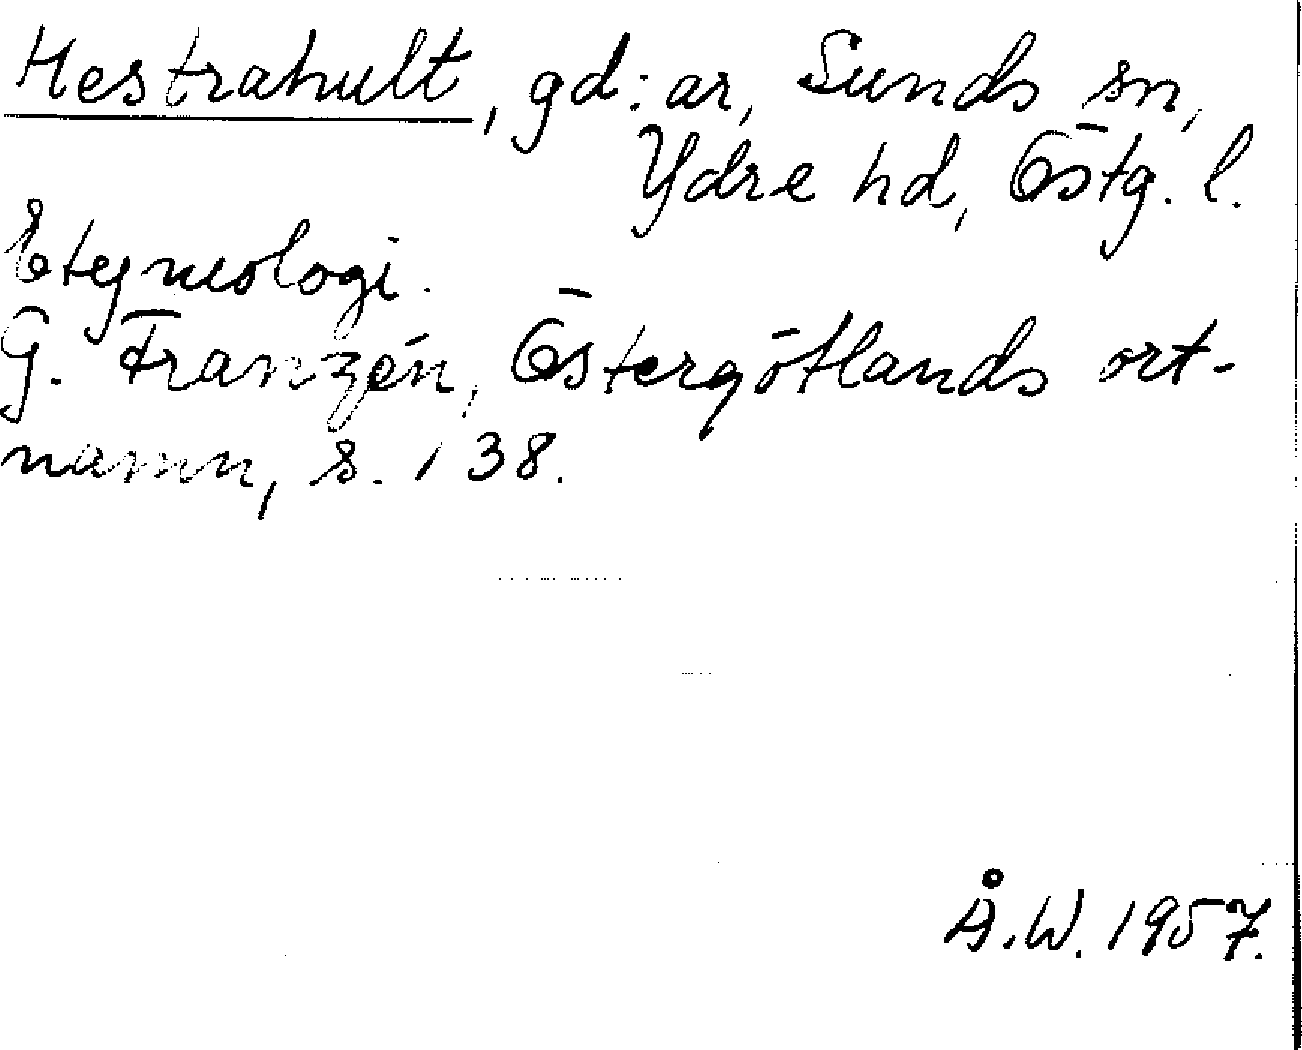 Hestrahult, gd:ar, Sunds sn,
Ydre hd, Östg. l.
Etymologi.
G. Franzén, Östergötlands ort-
namn, s. 138.
Å.W. 1957.